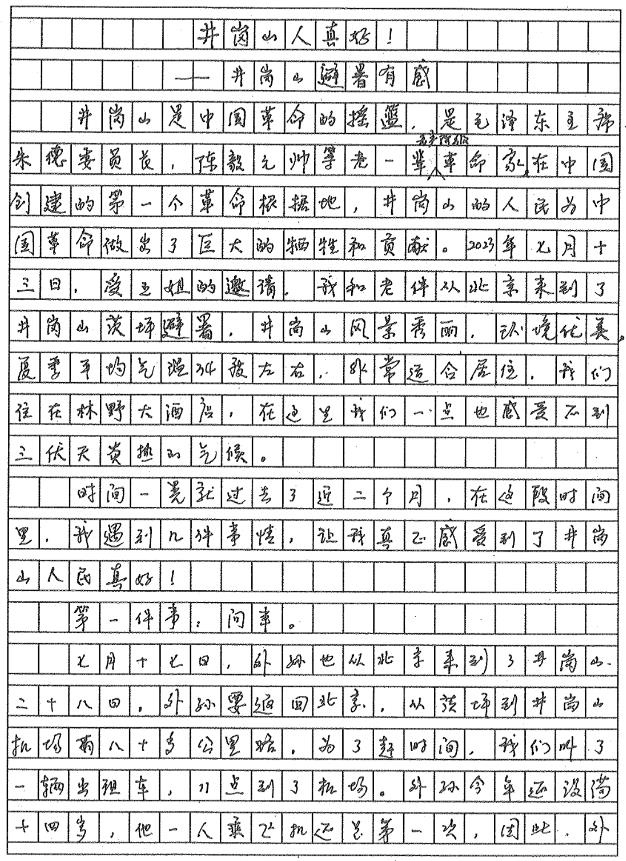 井岗山人真好！
——井岗山避署有感
井岗山是中国革命的摇篮，是毛泽东主席
朱德委员长，陈毅元帅等老一辈革命家在中国
创建的第一个革命根据地，井岗山的人民为中
国革命做出了巨大的牺牲和贡献。2023年七月十
三日，受王姐的邀请，我和老伴从北京来到了
井岗山茨坪避署，井岗山风景秀丽，环境优美，
夏季平均气温24度左右，非常适合居住，我们
住在林野大酒店，在这里我们一点也感受不到
三伏天炎热的气候。
时间一晃就过去了近二个月，在这段时间
里，我遇到几件事情，让我真正感受到了井岗
山人民真好！
第一件事：问车。
七月十七日，外孙也从北京来到了井岗山，
二十八日，外孙要返回北京，从茨坪到井岗山
机场有八十多公里路，为了赶时间，我们叫了
一辆出租车，11点到了机场。外孙今年还没满
十四岁，他一人乘飞机还是第一次，因此，外